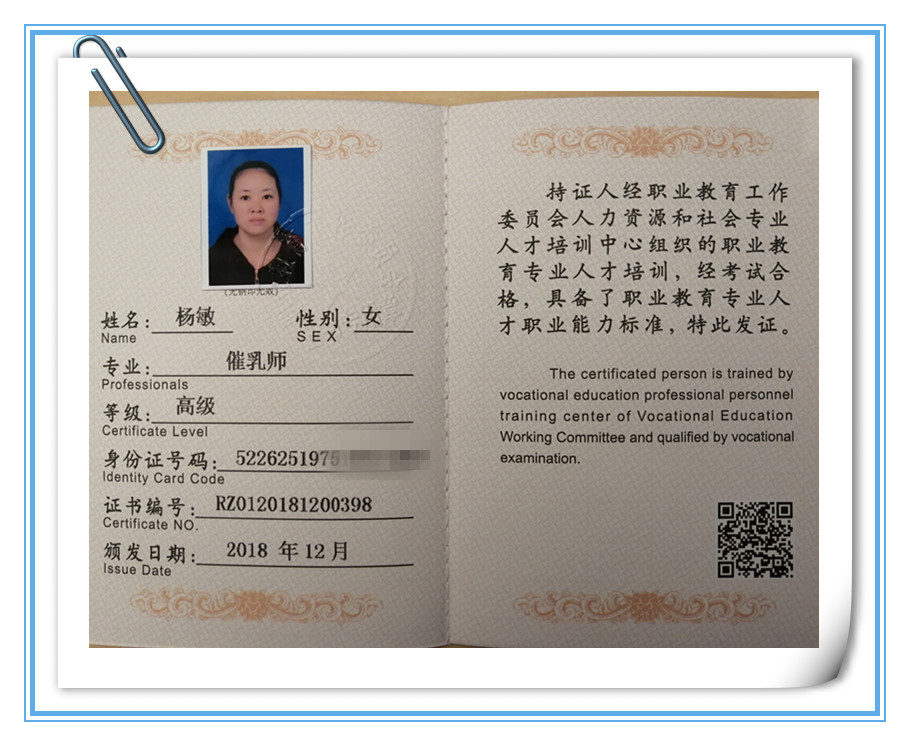 (无钢印无效)
姓名： 杨敏 性别： 女
Name SEX
专业： 催乳师
Professionals
等级： 高级
Certificate Level
身份证号码： 5226251975
Identity Card Code
证书编号： RZ0120181200398
Certificate NO.
颁发日期： 2018 年 12 月
Issue Date
持证人经职业教育工作
委员会人力资源和社会专业
人才培训中心组织的职业教
育专业人才培训，经考试合
格，具备了职业教育专业人
才职业能力标准，特此发证。
The certificated person is trained by
vocational education professional personnel
training center of Vocational Education
Working Committee and qualified by vocational
examination.